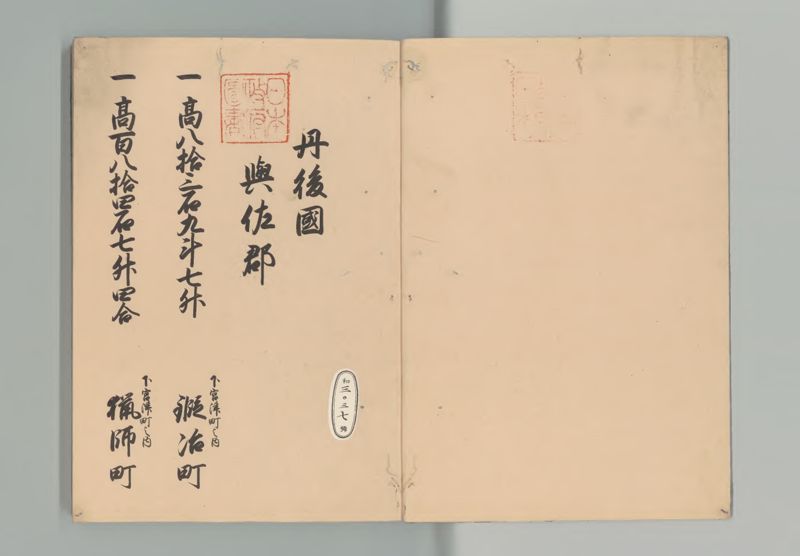 丹後國
與佐郡
一高八拾三石九斗七升
下宮津町之内
鍛冶町
一高百八拾四石七升四合
下宮津町之内
猟師町
日本
政府
圖書
和
三〇三七